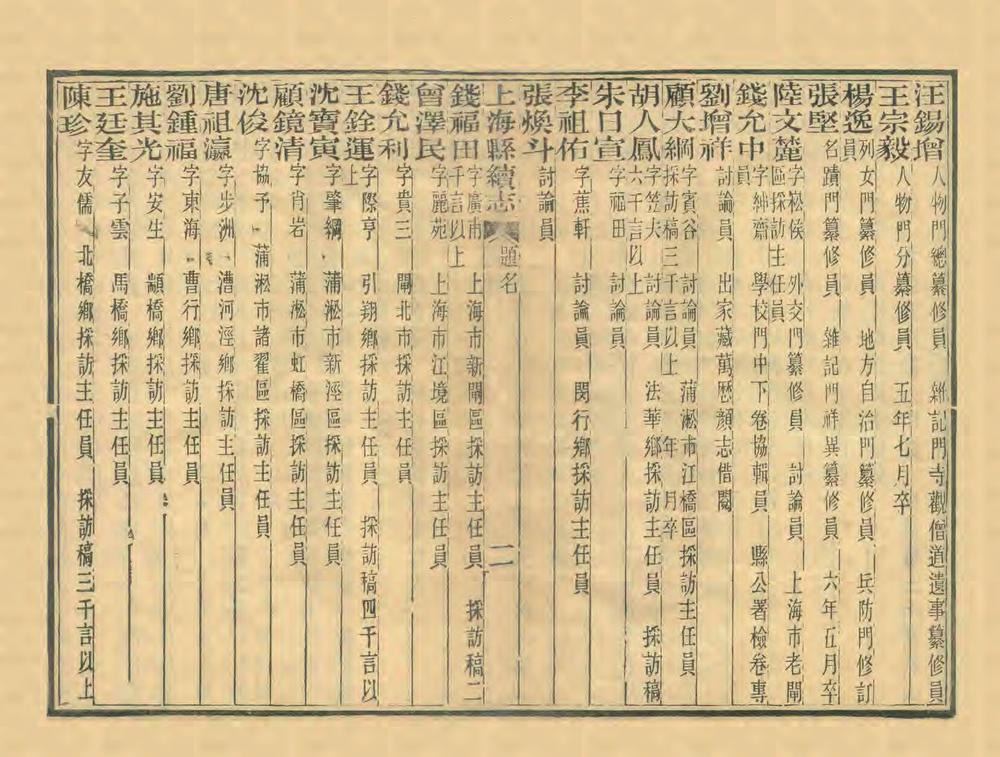 汪錫增 人物門總纂修員 雜記門寺觀僧道遺事纂修員
王宗毅 人物門分纂修員 五年七月卒
楊逸 列女門纂修員 地方自治門纂修員 兵防門修訂
員
張堅 名蹟門纂修員 雜記門祥異纂修員 六年五月卒
陸文麓 字松侯 外交門纂修員 討論員 上海市老閘
區採訪主任員
錢允中 字紳齋 學校門中下卷協輯員 縣公署檢卷專
員
劉增祥 討論員 出家藏萬歷顏志借閱
顧大綱 字賓谷 討論員 蒲淞市江橋區採訪主任員
採訪稿三千言以上 年 月卒
胡人鳳 字笠夫 討論員 法華鄉採訪主任員 採訪稿
六千言以上
朱日宣 字福田 討論員
李祖佑 字蕉軒 討論員 閔行鄉採訪主任員
張煥斗 討論員
上海縣續志 題名 二
錢福田 字廣甫 上海市新閘區採訪主任員 採訪稿二
千言以上
曾澤民 字麗苑 上海市江境區採訪主任員
錢允利 字貴三 閘北市採訪主任員
王銓運 字際亨 引翔鄉採訪主任員 採訪稿四千言以
上
沈寶寅 字肇綱 蒲淞市新涇區採訪主任員
顧鏡清 字肖岩 蒲淞市虹橋區採訪主任員
沈俊 字協予 蒲淞市諸翟區採訪主任員
唐祖瀛 字步洲 漕河涇鄉採訪主任員
劉鍾福 字東海 曹行鄉採訪主任員
施其光 字安生 顓橋鄉採訪主任員
王廷奎 字子雲 馬橋鄉採訪主任員
陳珍 字友儒 北橋鄉採訪主任員 採訪稿三千言以上